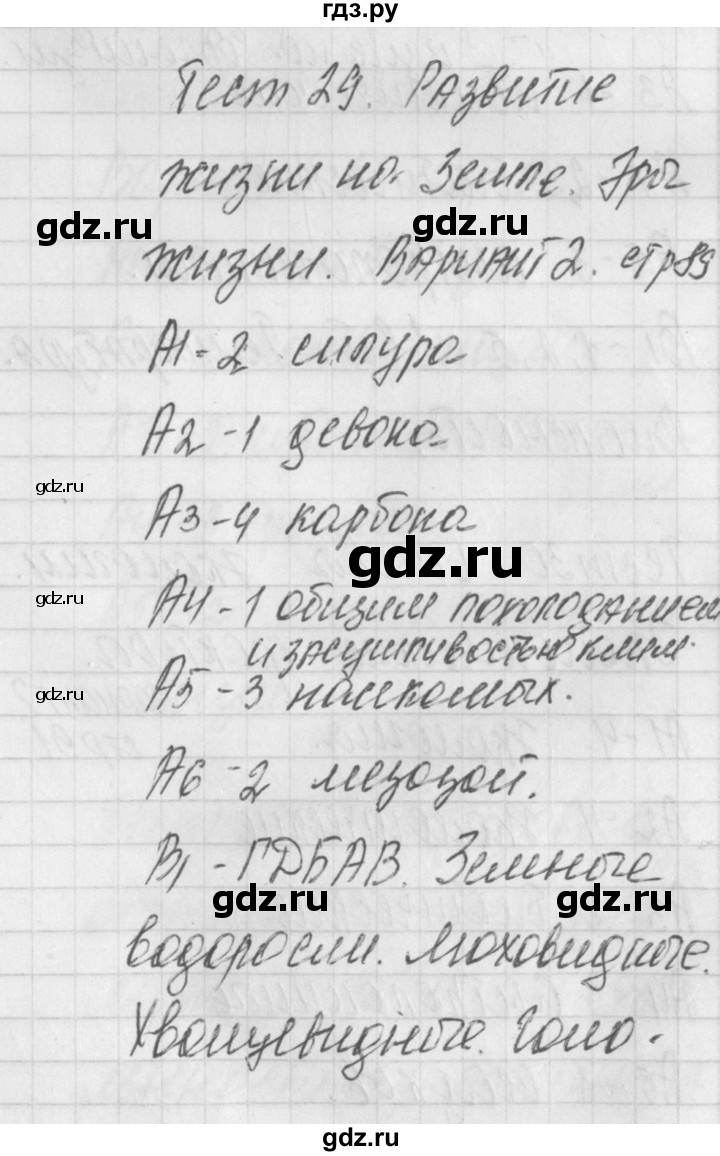 гдз.ру
Тест 29. Развитие
жизни на Земле. Эры
gdz.ru gdz.ru
жизни. Вариант 2. стр 89
А1 - 2 силура
А2 - 1 девона
gdz.ru
А3 - 4 карбона
gdz.ru
gdz.ru
А4 - 1 общим похолоданием
и засушливостью клим.
gdz.ru
А5 - 3 насекомых.
А6 - 2 мезозой.
В1 - ГДБАВ. Земные
gdz.ru gdz.ru
водоросли. Моховидные.
Хвощевидные. Голо -
gdz.ru